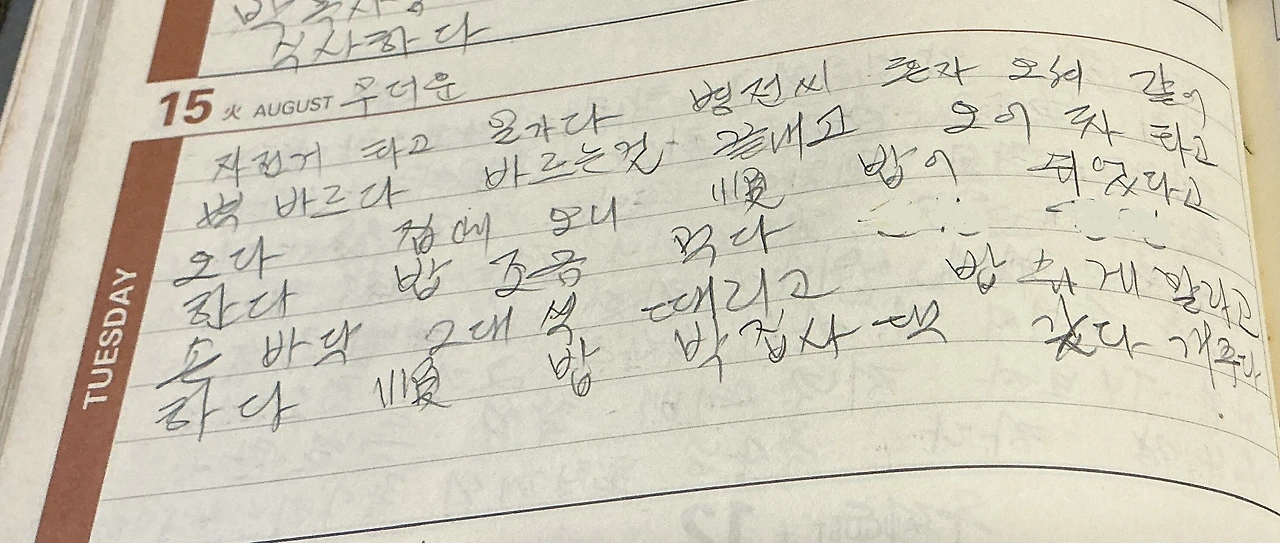 식사하다
15 火 AUGUST 무더운
자전거 타고 온가다 병전씨 혼자 오셔 같이
벽 바르다 바르는것 끝내고 오이 차 타고
오다 집에 오니 順 밥이 되었다고
한다 밥 조금 먹다
손 바닥 2대 씩 때리고 밥 하게 말라고
하다 順 밥 박집사 댁 갔다 개주다
TUESDAY